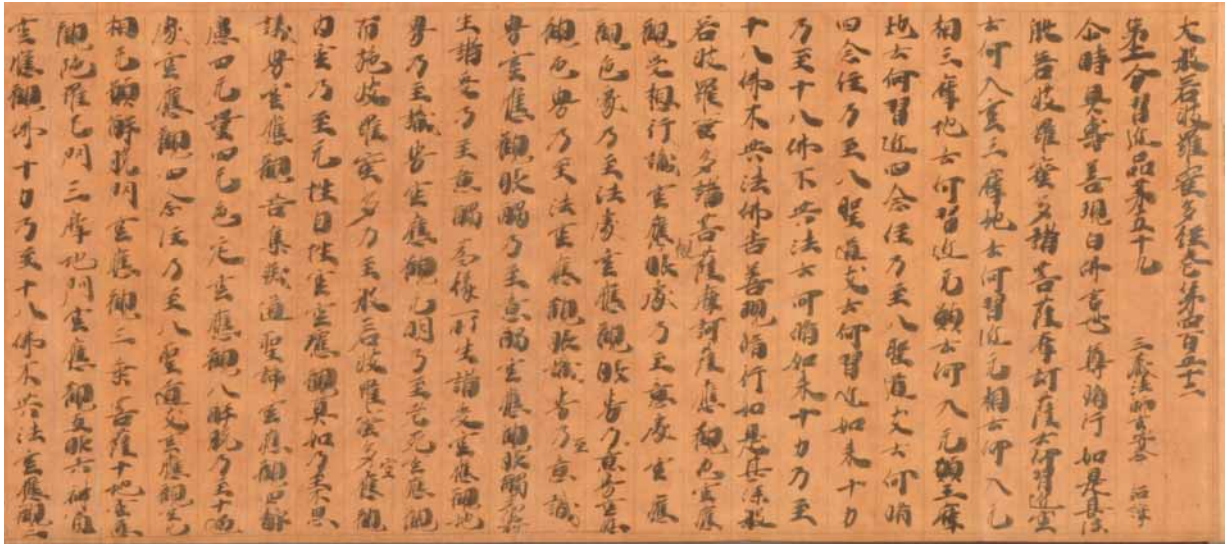 大般若波羅蜜多經卷第四百五十二
第二分習近品第五十九 三藏法師玄奘 詔譯
尒時具壽善現白佛言世尊脩行如是甚深
般若波羅蜜多諸菩薩摩訶薩云何習近空
云何入空三摩地云何習近无相云何入无
相三摩地云何習近无願云何入无願三摩
地云何習近四念住乃至八聖道支云何脩
四念住乃至八聖道支云何習近如來十力
乃至十八佛不共法云何脩如來十力乃至
十八佛不共法佛告善現脩行如是甚深般
若波羅蜜多諸菩薩摩訶薩應觀色空應
觀受想行識空應觀眼處乃至意處空應
觀色處乃至法處空應觀眼界乃至意界空應
觀色界乃至法界空應觀眼識界乃至意識
界空應觀眼觸乃至意觸空應觀眼觸為緣
生諸受乃至意觸為緣所生諸受空應觀地
界乃至識界空應觀无明乃至老死空應觀
布施波羅蜜多乃至般若波羅蜜多空應觀
內空乃至无性自性空空應觀真如乃至不思
議界空應觀苦集滅道聖諦空應觀四靜
慮四无量四无色定空應觀八解脫乃至十遍
處空應觀四念住乃至八聖道支空應觀空无
相无願解脫門空應觀三乘菩薩十地空應
觀陀羅尼門三摩地門空應觀五眼六神通
空應觀佛十力乃至十八佛不共法空應觀一